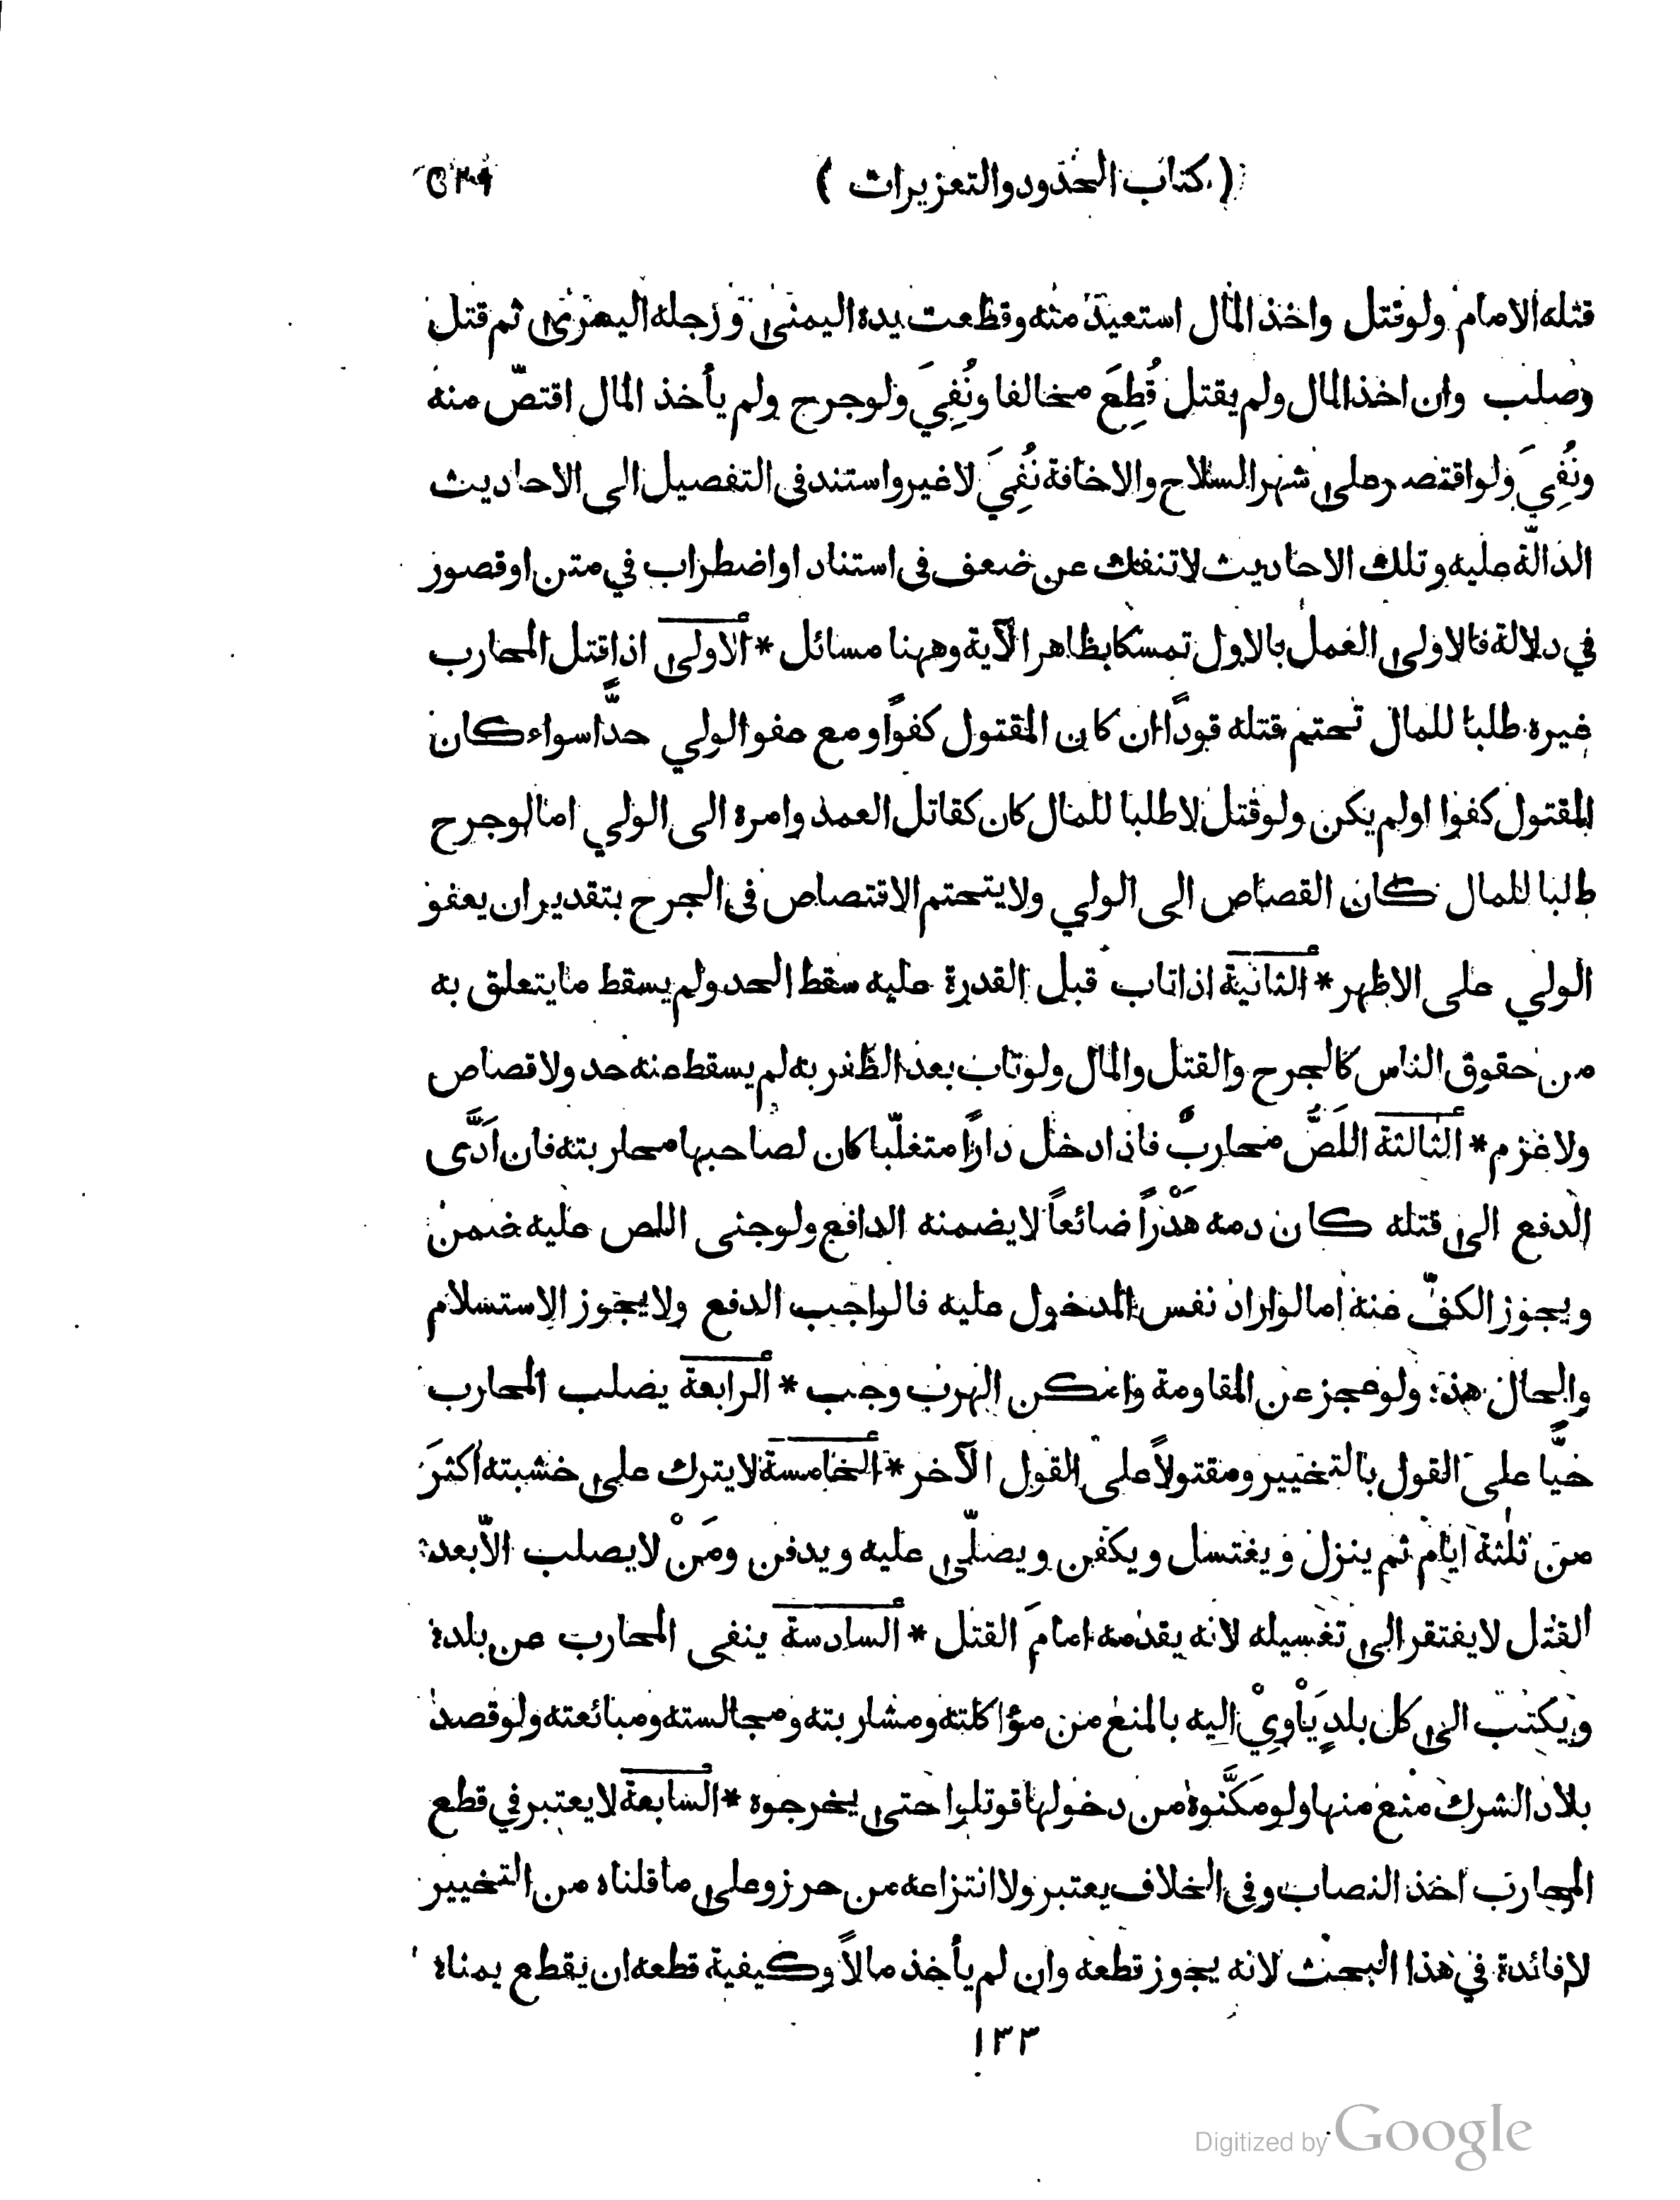 ( كتاب الحدود والتعزيرات ) ٥٢٩
قتله الامام ولوقتل واخذ المال استعيد منه وقطعت يده اليمنى و رجله اليسرى ثم قتل
وصلب وان اخذ المال ولم يقتل قُطِعَ مخالفا ونُفِيَ ولوجرح ولم يأخذ المال اقتصّ منه
ونُفِيَ ولواقتصر على شهر السلاح والاخافة نُفِيَ لاغير واستند فى التفصيل الى الاحاديث
الدالّة عليه وتلك الاحاديث لاتنفك عن ضعف فى استناد او اضطراب في متن او قصور
في دلالة فالاولى العمل بالاول تمسكا بظاهر الآية وههنا مسائل * الاولى اذا قتل المحارب
غيره طلبا للمال تحتم قتله قودًا ان كان المقتول كفوًا ومع عفو الولي حدًّا سواء كان
المقتول كفوا اولم يكن ولوقتل لاطلبا للمال كان كقاتل العمد وامره الى الولي امالوجرح
طلبا للمال كان القصاص الى الولي ولايتحتم الاقتصاص فى الجرح بتقدير ان يعفو
الولي على الاظهر * الثانية اذا تاب قبل القدرة عليه سقط الحد ولم يسقط مايتعلق به
من حقوق الناس كالجرح والقتل والمال ولوتاب بعد الظفر به لم يسقط عنه حد ولاقصاص
ولاغرم * الثالثة اللَصُّ محاربٌ فاذا دخل دارًا متغلّبا كان لصاحبها محاربته فان اَدَّى
الدفع الى قتله كان دمه هَدْرًا ضائعاً لايضمنه الدافع ولوجنى اللص عليه ضمن
ويجوز الكفّ عنه امالواراد نفس المدخول عليه فالواجب الدفع ولايجوز الاستسلام
والحال هذه ولوعجز عن المقاومة وامكن الهرب وجب * الرابعة يصلب المحارب
حيًّا على القول بالتخيير ومقتولاً على القول الآخر * الخامسة لايترك على خشبته اكثرَ
من ثلثة ايام ثم ينزل و يغتسل ويكفن ويصلّى عليه ويدفن ومَنْ لايصلب الاّبعد
القتل لايفتقر الى تغسيله لانه يقدمه امامَ القتل * السادسة ينفى المحارب عن بلده
ويكتب الى كل بلدٍ يَأْوِيْ اليه بالمنع من مؤاكلته ومشاربته ومجالسته ومبائعته ولوقصد
بلاد الشرك منع منها ولو مَكَّنوه من دخولها قوتلوا حتى يخرجوه * السابعة لايعتبر في قطع
المحارب اخذ النصاب وفى الخلاف يعتبر ولاانتزاعه من حرز وعلى ماقلناه من التخيير
لافائدة في هذا البحث لانه يجوز قطعه وان لم يأخذ مالاً وكيفية قطعه ان يقطع يمناه
١٣٣
Digitized by Google